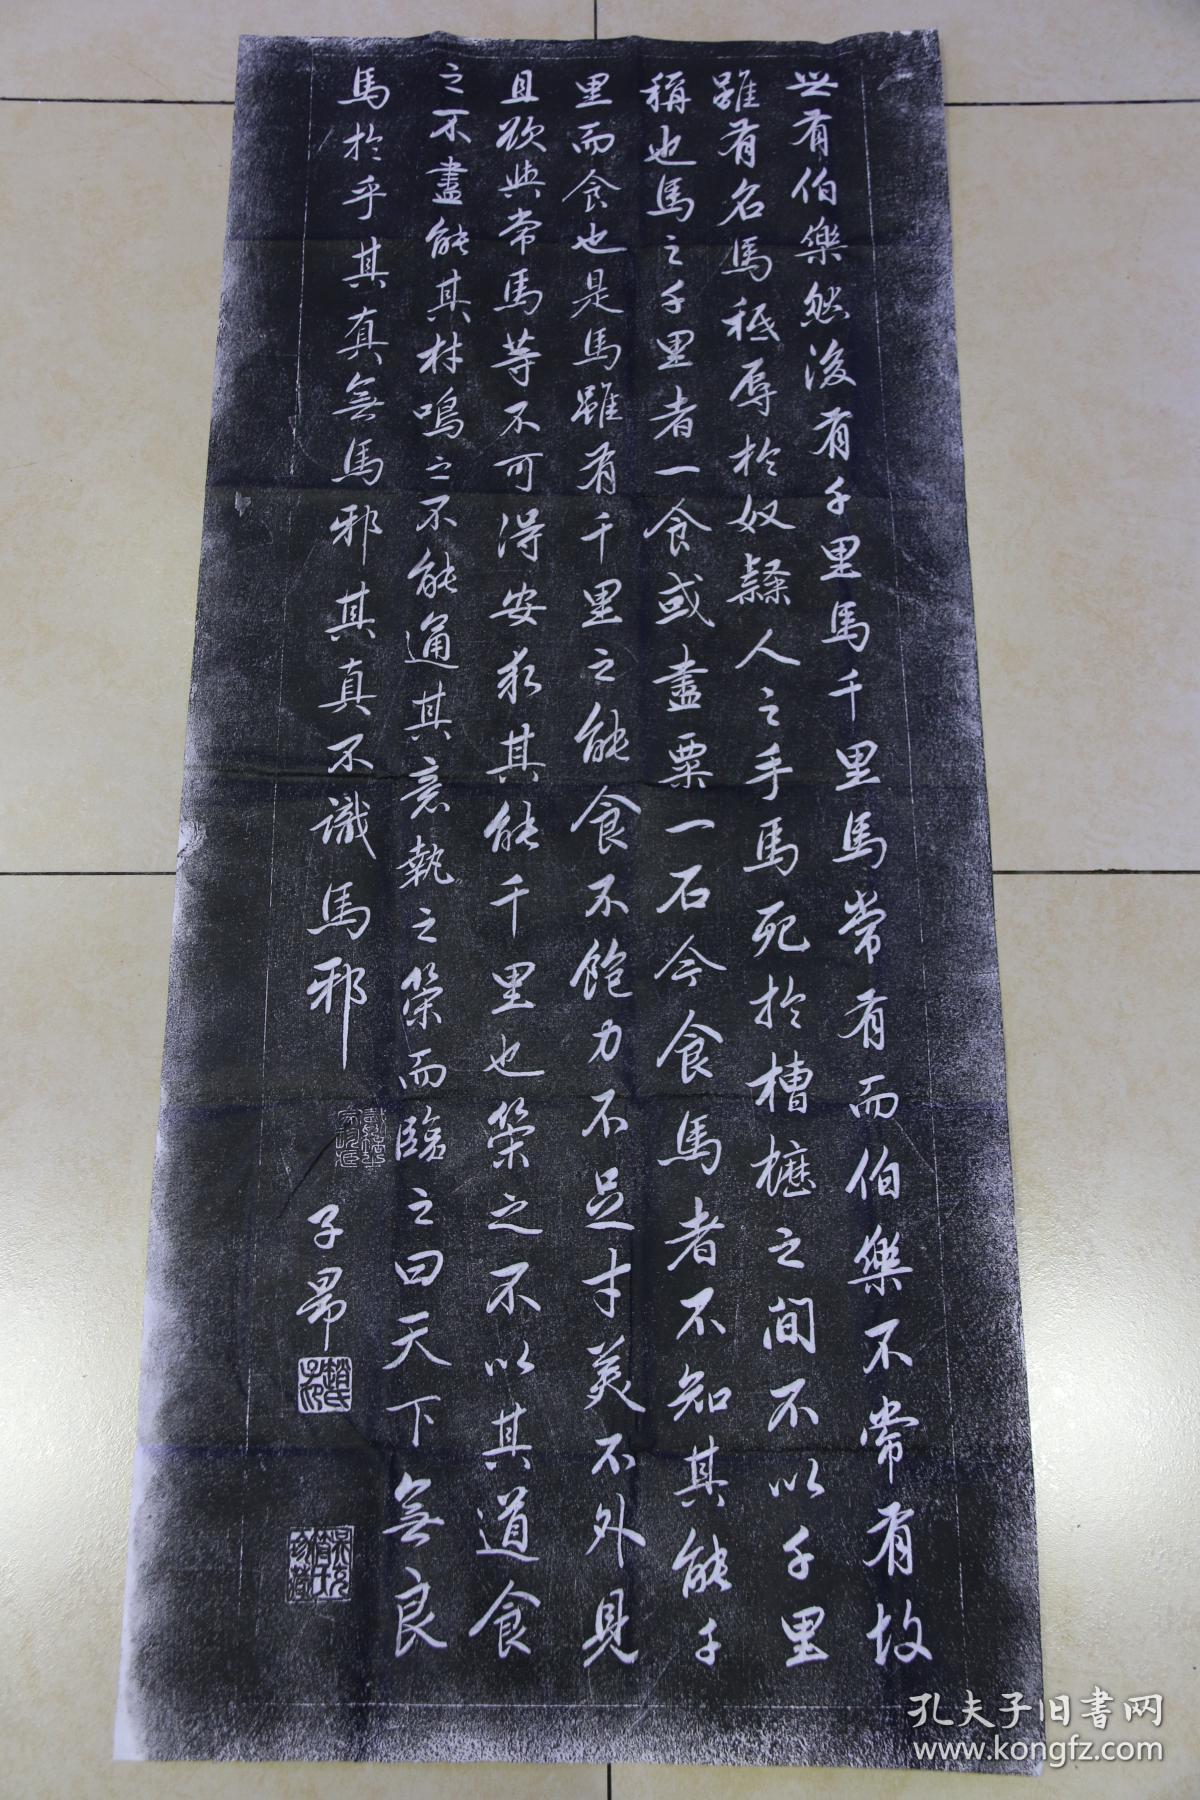 世有伯樂然後有千里馬千里馬常有而伯樂不常有故
雖有名馬秪辱於奴隸人之手馬死於槽櫪之間不以千里
稱也馬之千里者一食或盡粟一石今食馬者不知其能千
里而食也是馬雖有千里之能食不飽力不足才美不外見
且欲與常馬等不可得安求其能千里也策之不以其道食
之不盡能其材鳴之不能通其意執之策而臨之曰天下無良
馬於乎其真無馬邪其真不識馬邪
子昂
趙氏子昂
孔夫子旧书网
www.kongfz.com